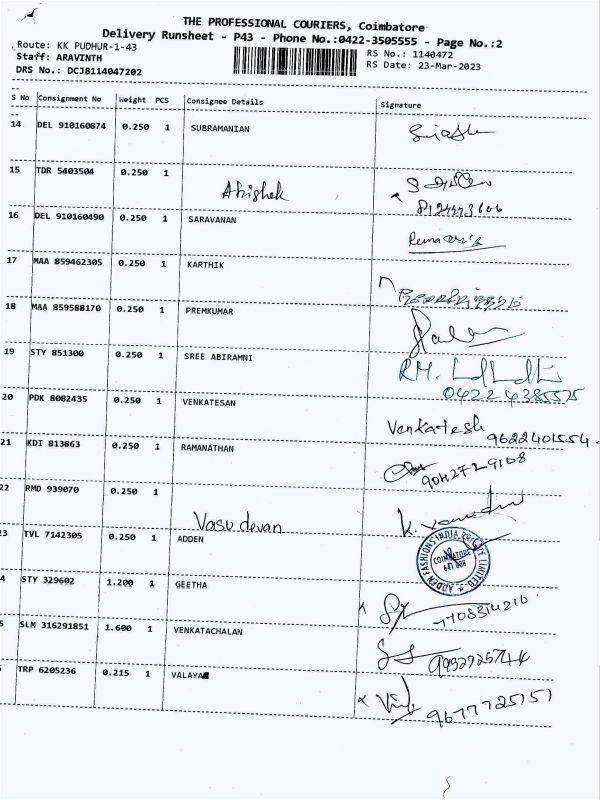 THE PROFESSIONAL COURIERS, Coimbatore
Delivery Runsheet - P43 - Phone No.:0422-3505555 - Page No.:2
Route: KK PUDHUR-1-43
RS No.: 1140472
Staff: ARAVINTH
RS Date: 23-Mar-2023
DRS No.: DCJB114047202
S No Consignment No Weight PCS Consignee Details Signature
14 DEL 910160874 0.250 1 SUBRAMANIAN
15 TDR 5403504 0.250 1 Abishek
16 DEL 910160490 0.250 1 SARAVANAN
17 MAA 859462305 0.250 1 KARTHIK
18 MAA 859588170 0.250 1 PREMKUMAR
19 STY 851300 0.250 1 SREE ABIRAMNI
04224385525
20 PDK 8082435 0.250 1 VENKATESAN Venkatesh 9622401554.
21 KDI 813863 0.250 1 RAMANATHAN
22 RMD 939070 0.250 1 Vasudevan
23 TVL 7142305 0.250 1 ADDEN ADDEN FASHIONS INDIA PRIVATE LIMITED COIMBATORE
4 STY 329602 1.200 1 GEETHA 7708314210
5 SLM 316291851 1.600 1 VENKATACHALAN
TRP 6205236 0.215 1 VALAYA 9677725151